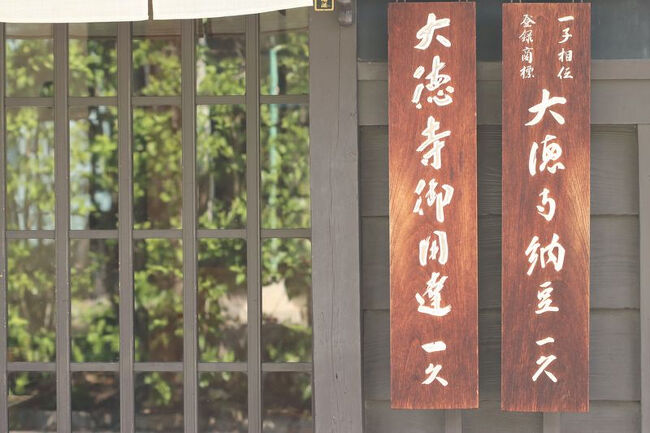 一子相伝
登録商標
大徳寺納豆 一久
大徳寺御用達 一久